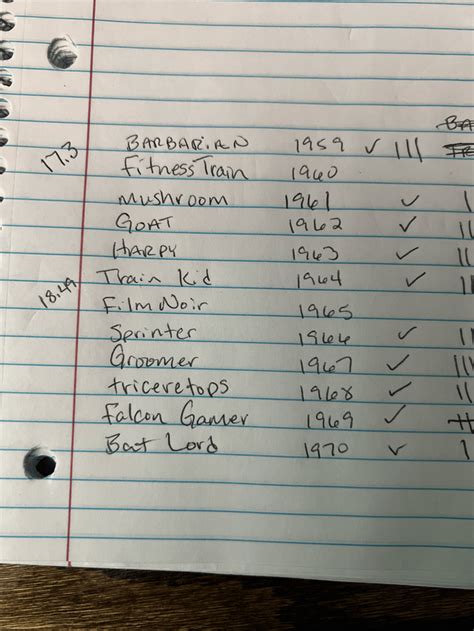 17.3 BARBARIAN 1959 ✓ |||
FitnessTrain 1960
mushroom 1961 ✓ |
GOAT 1962 ✓ ||
HARPY 1963 ✓ ||
18.49 Train Kid 1964 ✓ ||
Film Noir 1965
Sprinter 1966 ✓ ||
Groomer 1967 ✓ |||
triceretops 1968 ✓ ||
Falcon Gamer 1969 ✓
Bat Lord 1970 ✓ |